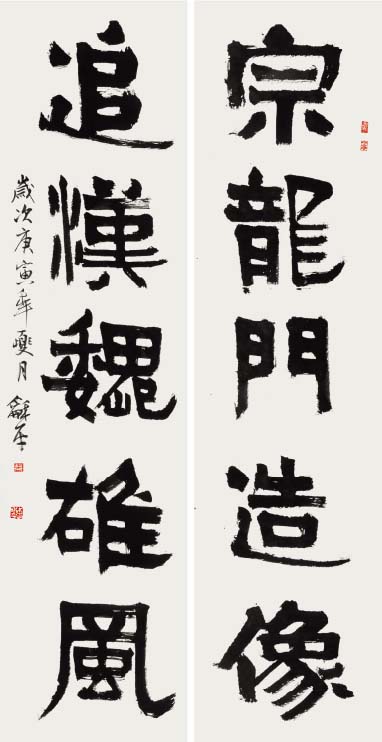 宗龍門造像
追漢魏雄風
歲次庚寅年夏月 龢平